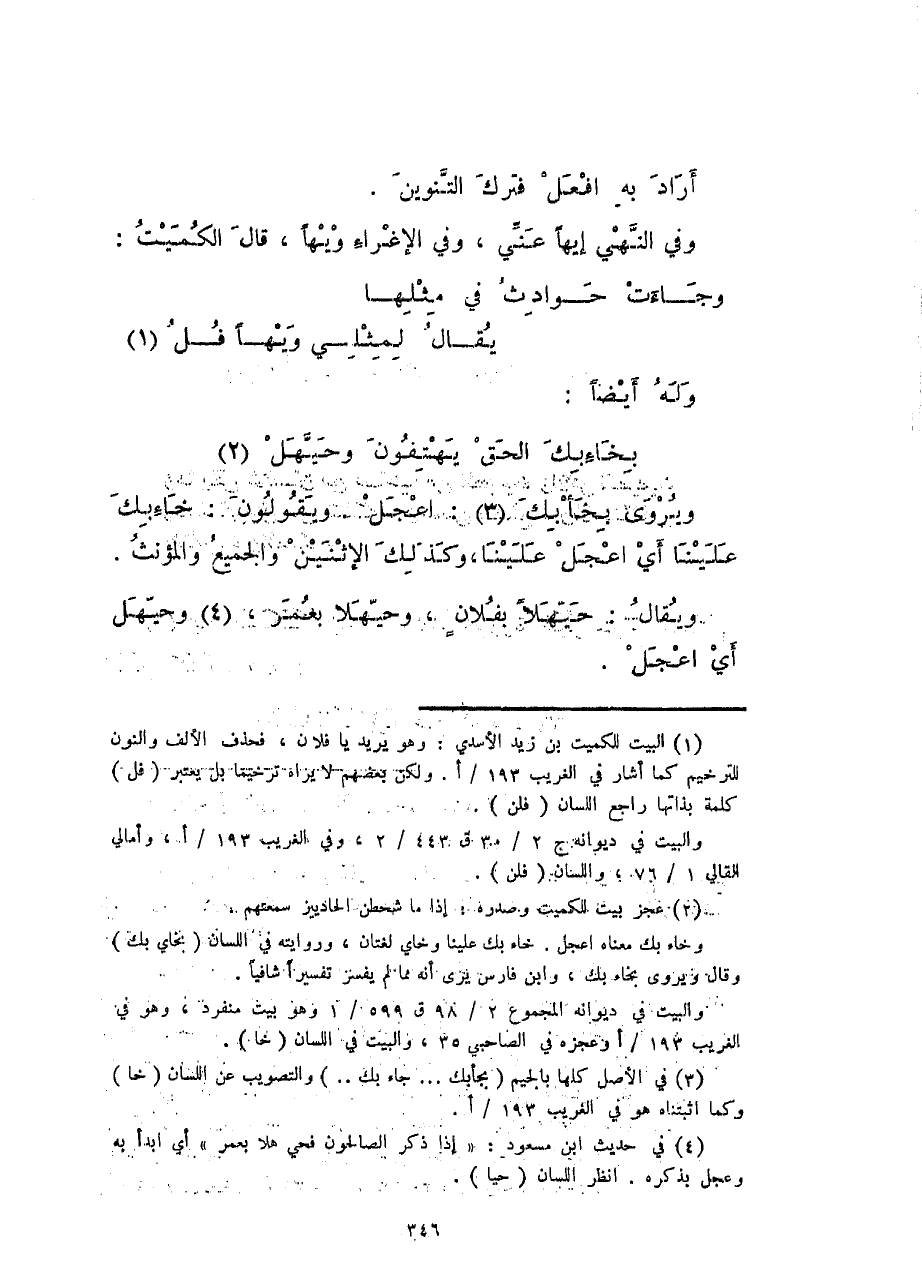 أَرَادَ بِهِ افْعَلْ فَتَركَ التَّنوينَ .
وفي النَّهْي إيهاً عَنّي ، وفي الإغْراءِ وَيْهاً ، قالَ الكُمَيْتُ :
وجَاءَتْ حَوادِثُ في مِثْلِها
يُقالُ لِمِثْلِي وَيْهاً فُلُ (١)
وَلَهُ أَيْضاً :
بِخَاءِبِكَ الحَقْ يَهْتِفُونَ وحَيَّهَلْ (٢)
ويُرْوَى بِخَأْبِكَ (٣) : اعْجَلْ . ويَقُولُونَ : خَاءِبِكَ
عَلَيْنَا أَيْ اعْجَلْ عَلَيْنَا، وكَذلِكَ الإثْنَيْنْ والجميعُ والمؤنثُ .
ويُقالُ : حَيّهَلاً بفُلانٍ ، وحيّهلا بعُمَرَ ، (٤) وحيّهَل
أَيْ اعْجَلْ .
(١) البيت للكميت بن زيد الأسدي : وهو يريد يا فلان ، فحذف الألف والنون
للترخيم كما أشار في الغريب ١٩٣ / أ . ولكن بعضهم لا يراه ترخيما بل يعتبر ( فل )
كلمة بذاتها راجع اللسان ( فلن ) .
والبيت في ديوانه ج ٢ / ٣٠ ق ٤٤٣ / ٢ ، وفي الغريب ١٩٣ / أ ، وأمالي
القالي ١ / ٧٦ ، واللسان ( فلن ) .
(٢) عجز بيت للكميت وصدره : إذا ما شحطن الحاديين سمعتهم .
وخاء بك معناه اعجل . خاء بك علينا وخاي لغتان ، وروايته في اللسان ( بخاي بك )
وقال ويروى بخاء بك ، وابن فارس يرى أنه مما لم يفسر تفسيراً شافياً .
والبيت في ديوانه المجموع ٢ / ٩٨ ق ٥٩٩ / ١ وهو بيت منفرد ، وهو في
الغريب ١٩٣ / أ وعجزه في الصاحبي ٣٥ ، والبيت في اللسان ( خا ) .
(٣) في الأصل كلها بالجيم ( بجأبك ... جاء بك .. ) والتصويب عن اللسان ( خا )
وكما اثبتناه هو في الغريب ١٩٣ / أ .
(٤) في حديث ابن مسعود : « إذا ذكر الصالحون فحي هلا بعمر » أي ابدأ به
وعجل بذكره . انظر اللسان ( حيا ) .
٣٤٦